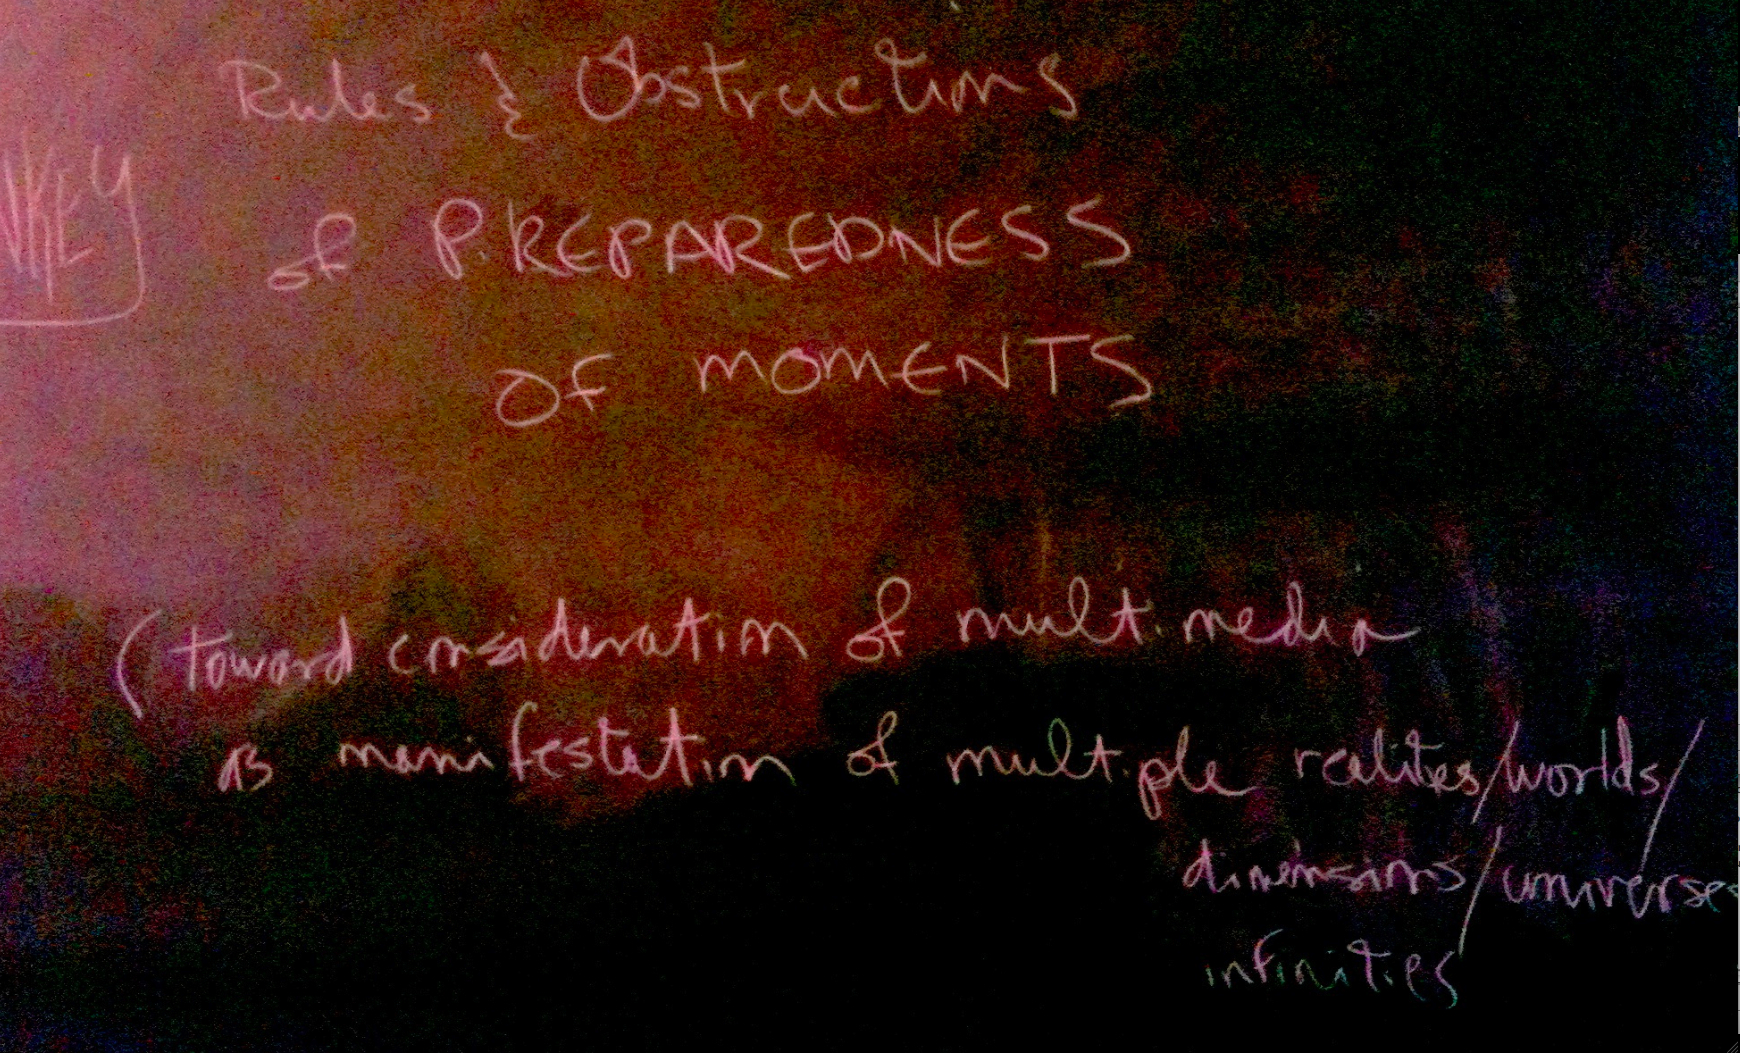 Rules & Obstructions
of PREPAREDNESS
OF MOMENTS
(toward consideration of multimedia
as manifestation of multiple realities/worlds/
dimensions/universes
infinities